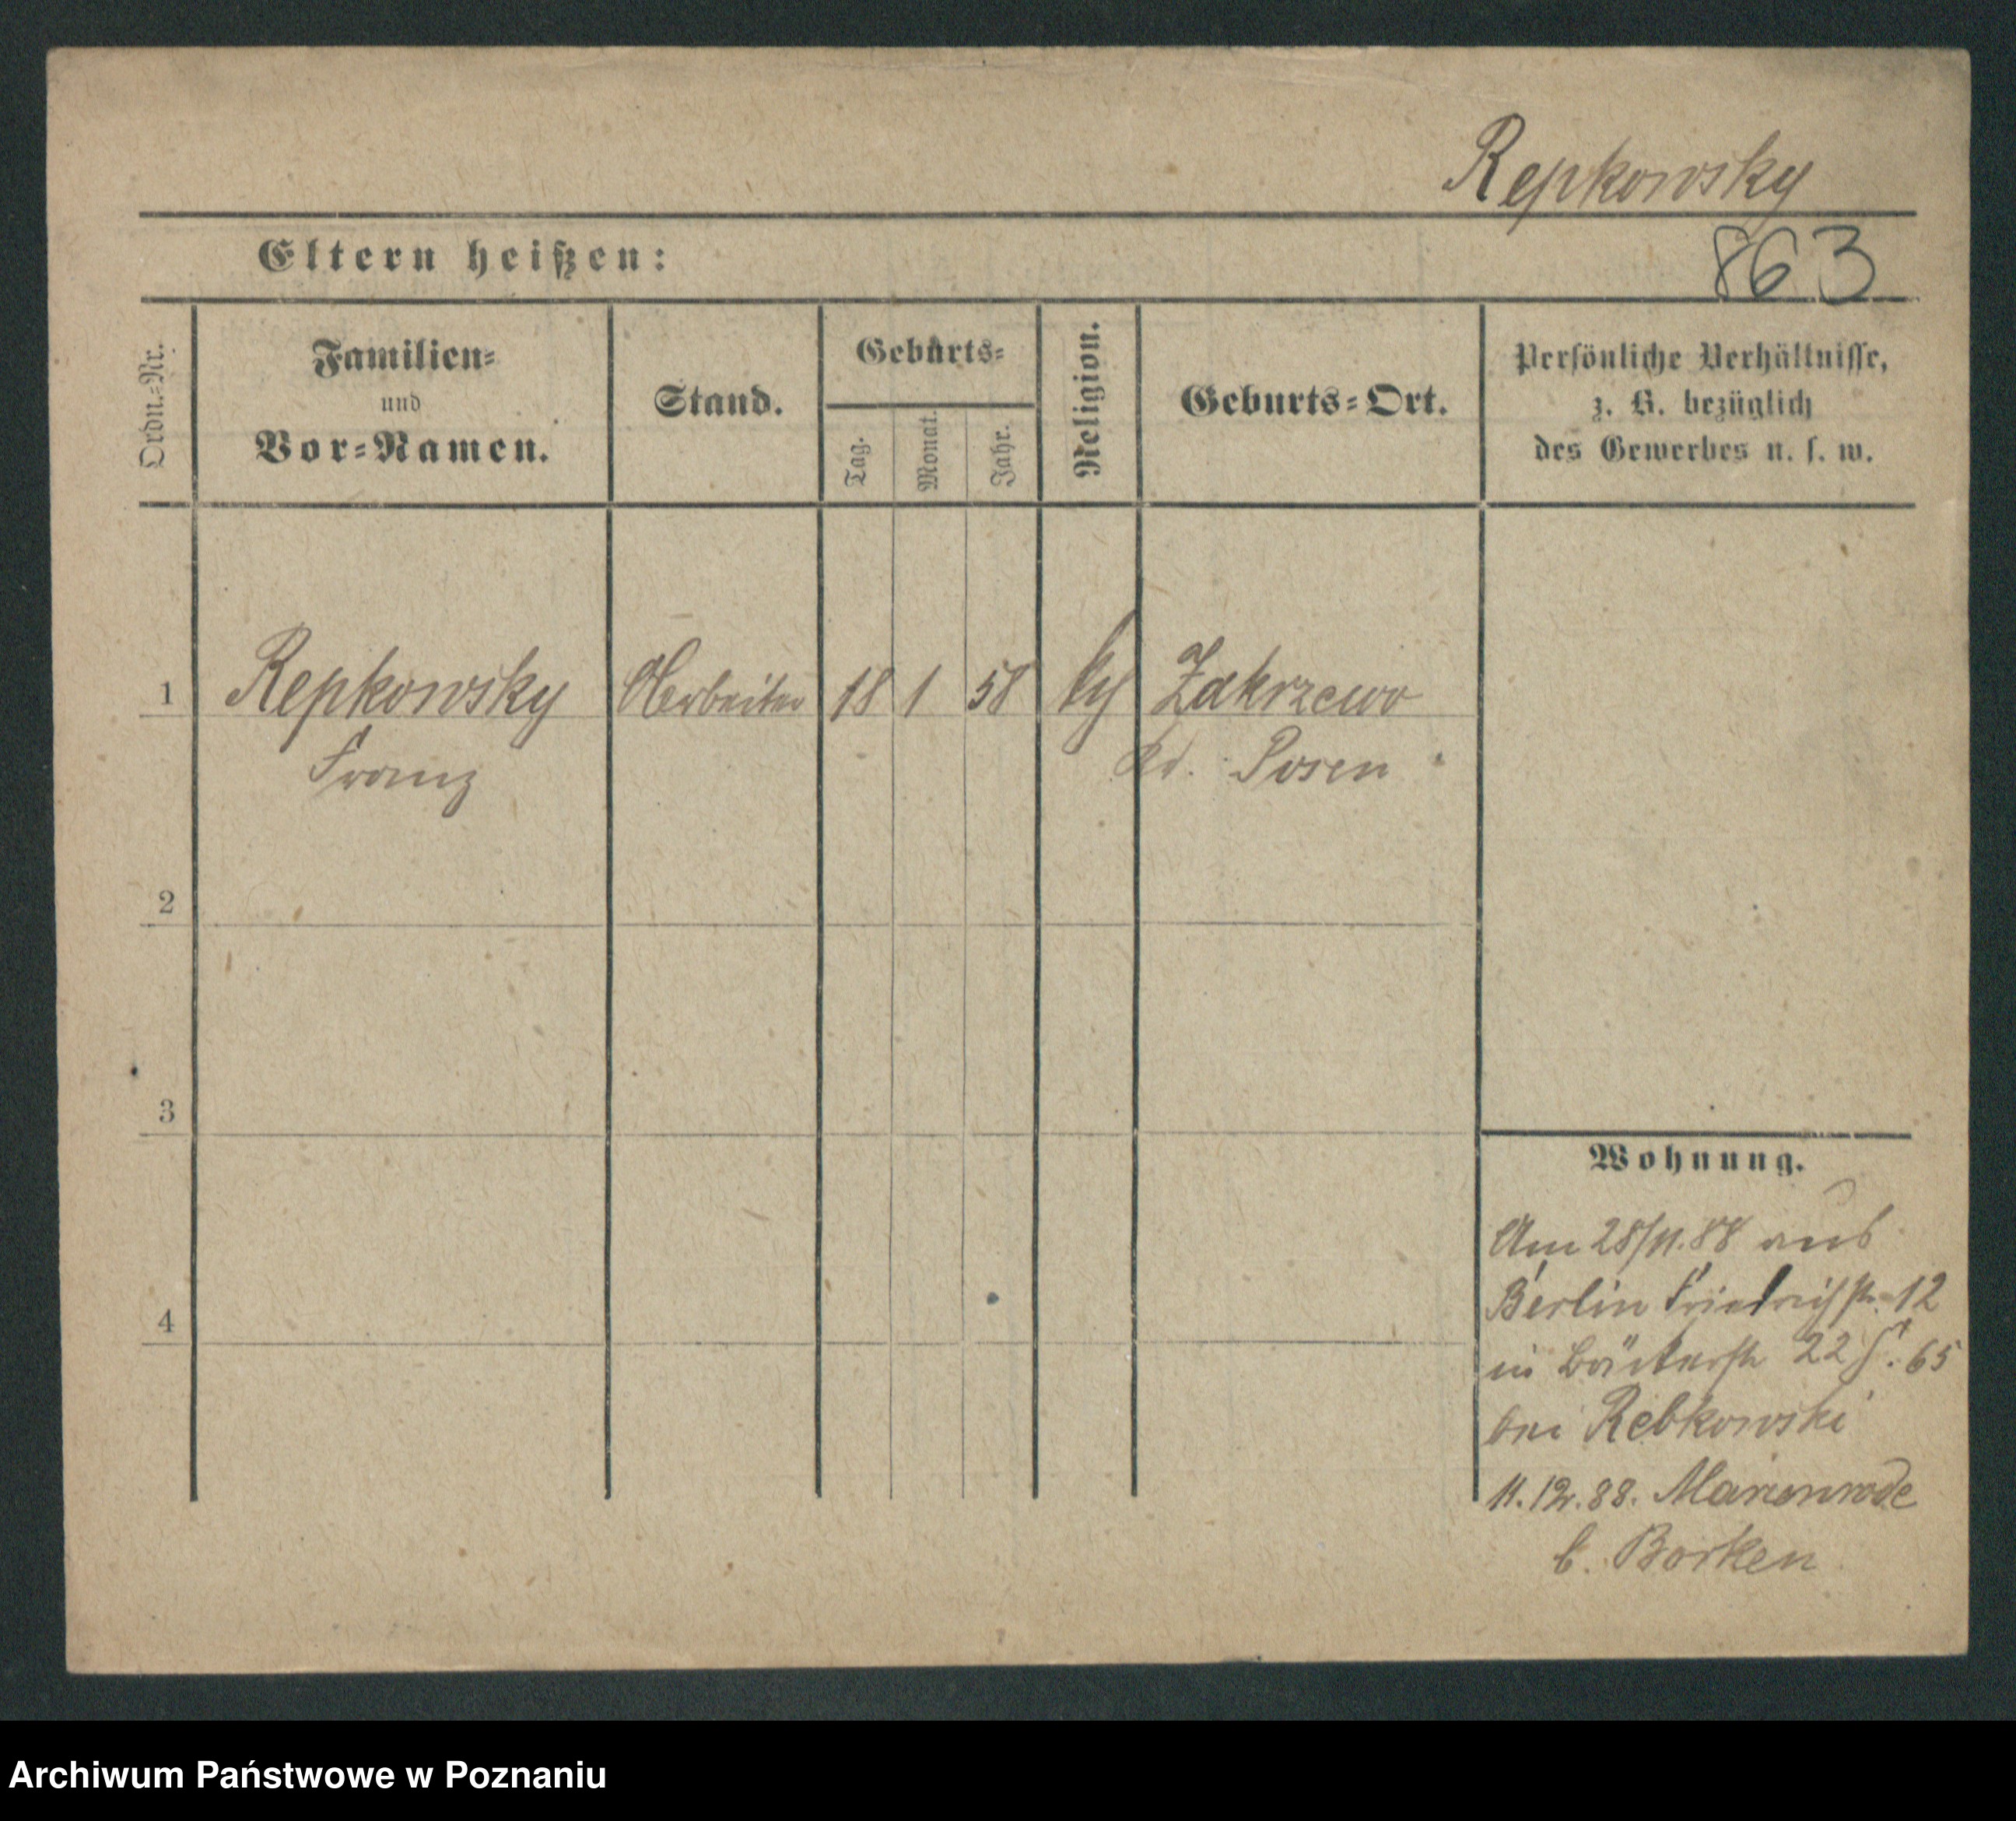 Repkowsky
Eltern heißen:
863
Ordn.-Nr.
Familien-
und
Vor-Namen.
Stand.
Geburts-
Tag.
Monat.
Jahr.
Religion.
Geburts-Ort.
Persönliche Verhältnisse,
z. B. bezüglich
des Gewerbes u. s. w.
1 Repkowsky Arbeiter 18 1 58 Zakrzewo
Franz Posen
2
3
4
Wohnung.
Am 28/11.88 aus
Berlin Friedrichstr. 12
in Bäckerstr 22 65
bei Rebkowski
11.12.88. Marienrode
b. Borken
Archiwum Państwowe w Poznaniu